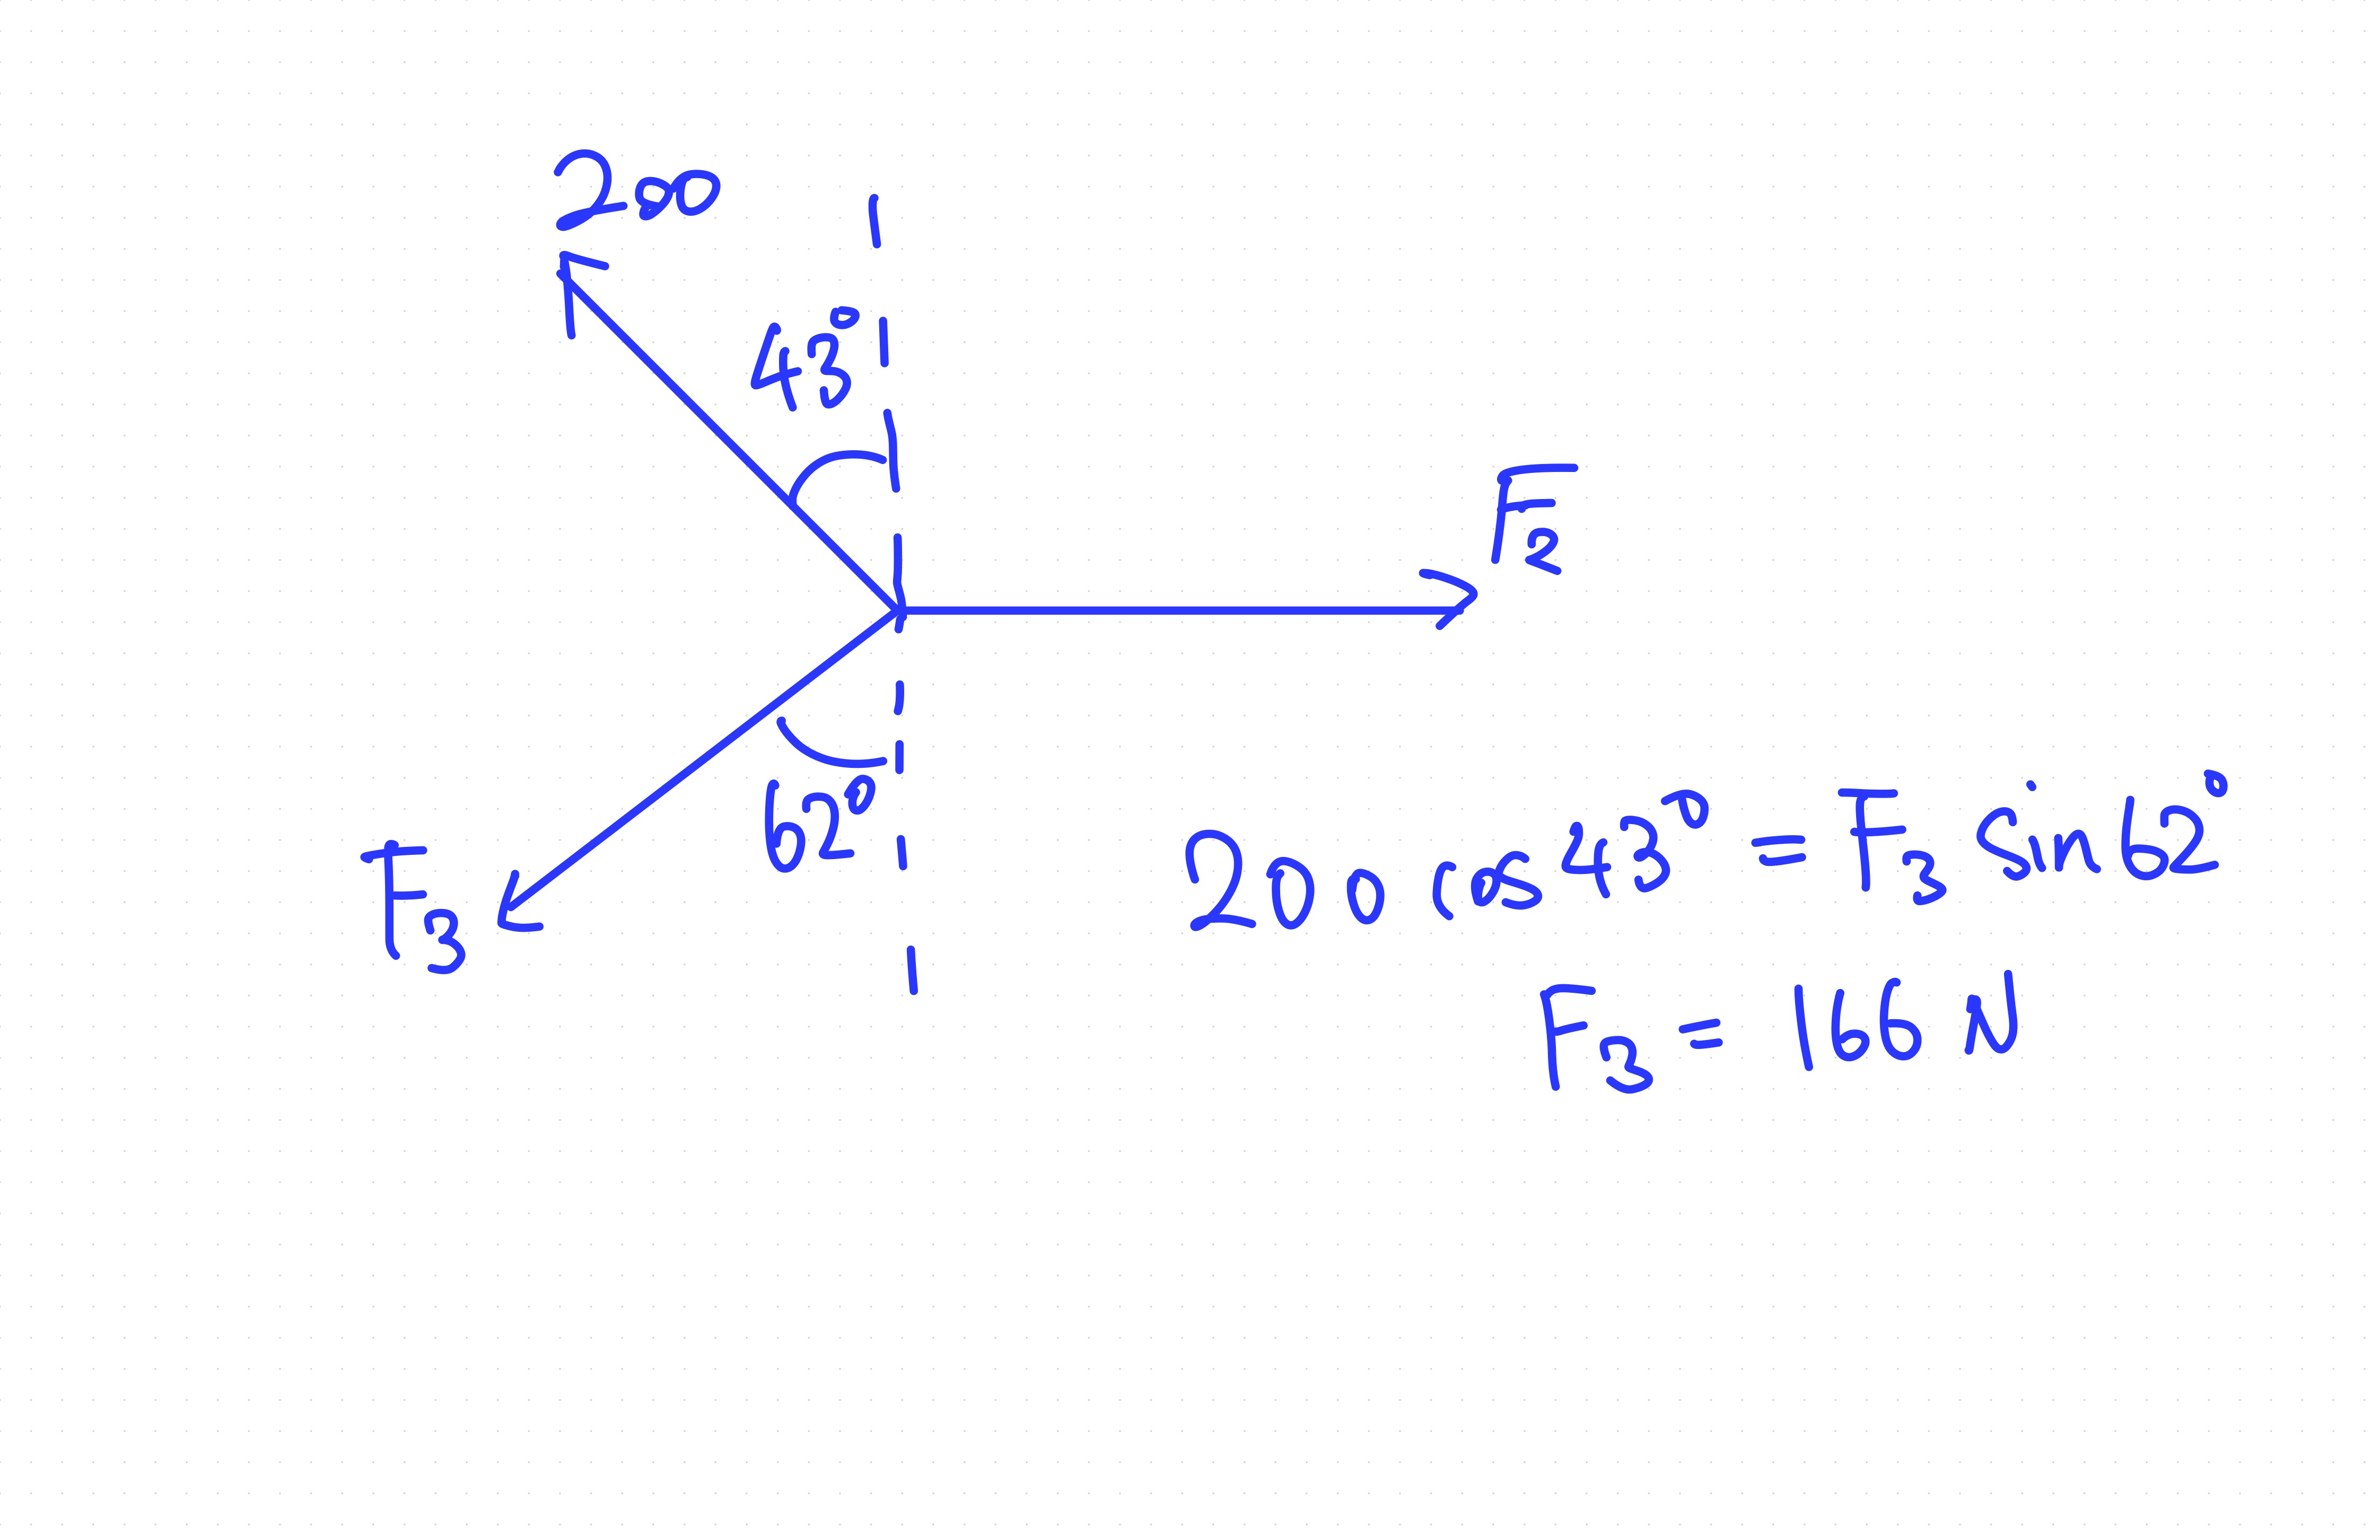 200
43°
F₂
62°
F₃
200 cos 43° = F₃ sin 62°
F₃ = 166 N